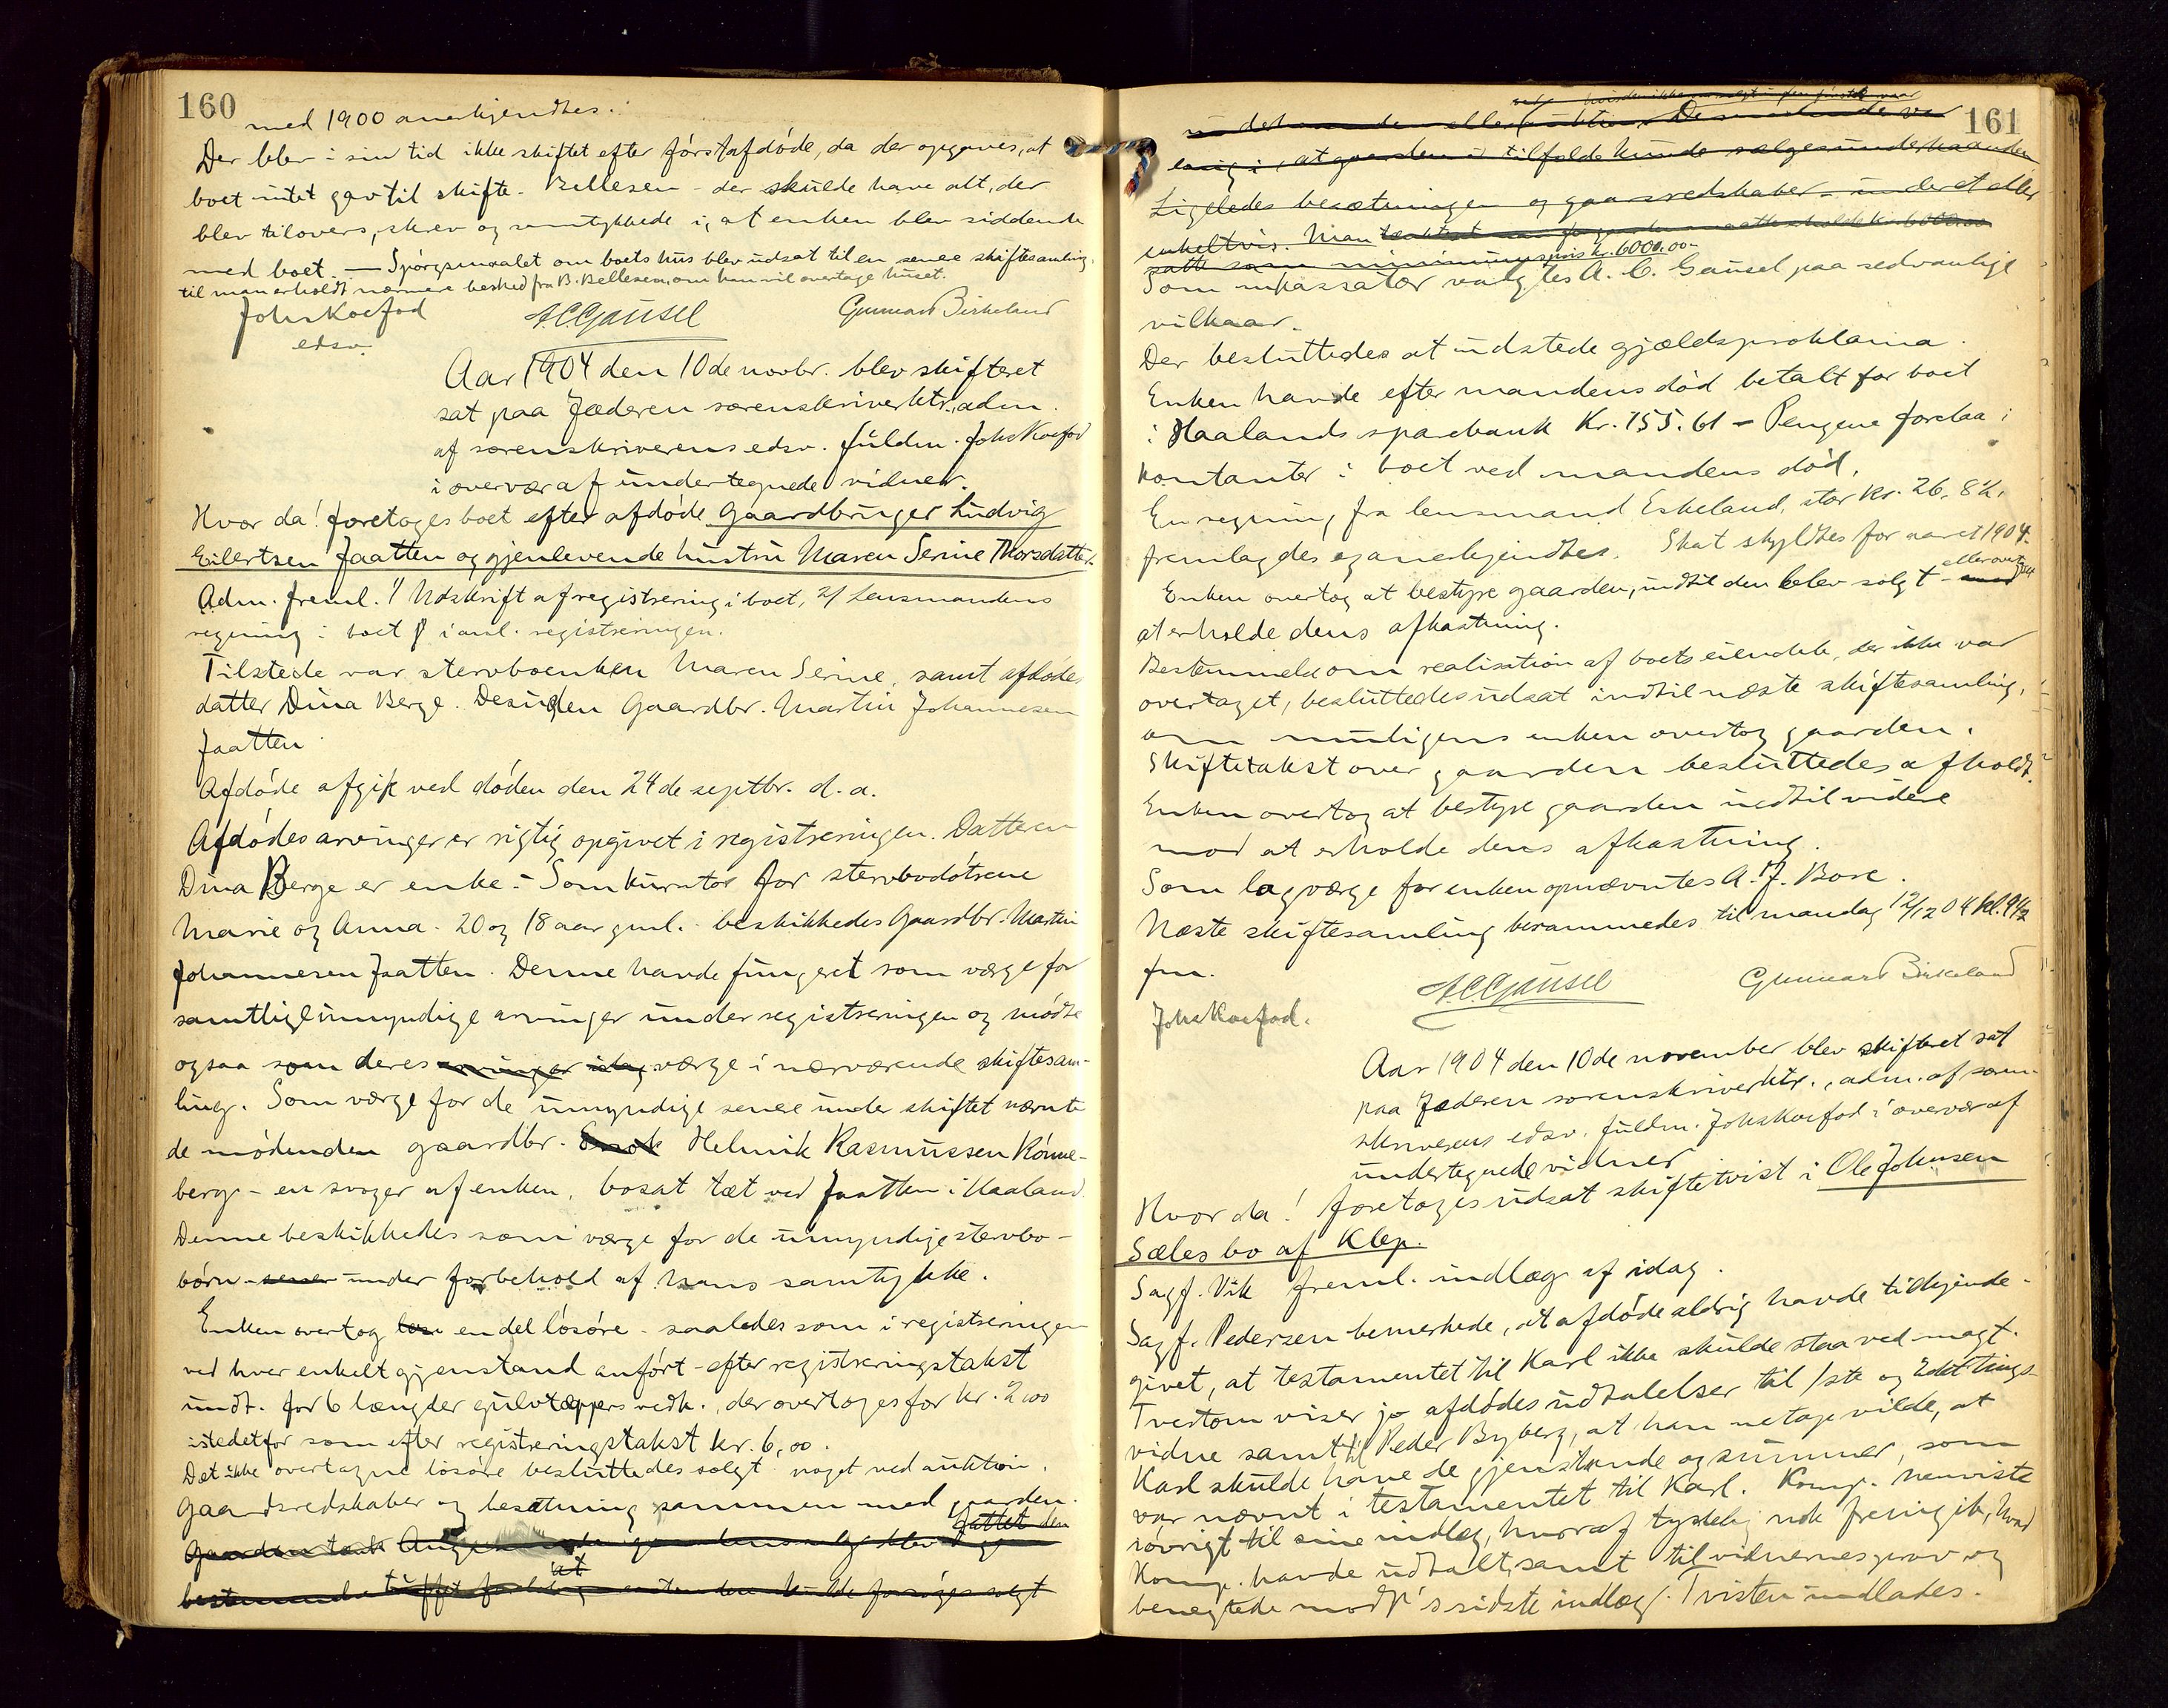 160
med 1900 anerkjendtes.
Der blev i sin tid ikke skiftet efter førstafdøde, da der opgaves, at
boet intet gav til skifte. Bellesen - der skulde have alt, der
blev tilovers, skrev og samtykkede i, at enken blev siddende
med boet. — Spörgsmaalet om boets hus blev udsat til en senee skiftesamling,
til man erholdt nærmere besked fra B. Bellesen, om han vil overtage huset.
Johs Koefod
A.C. Gausel
Gunnar Birkeland
edsv.
Aar 1904 den 10de novbr. blev skifteret
sat paa Jæderen sorenskriverktr., adm.
af sorenskriverens edsv. fuldm. Johs Koefod
i overvær af undertegnede vidner.
Hvor da! foretoges boet efter afdøde Gaardbruger Ludvig
Eilertsen Jaatten og gjenlevende hustru Maren Serine Thorsdatter.
Adm. freml. 1/ Udskrift af registrering i boet, 2/ Lensmandens
regning i boet i anl. registreringen.
Tilstede var stervboenken Maren Serine, samt afdødes
datter Dina Berge. Desuden Gaardbr. Martin Johannesen
Jaatten
Afdøde afgik ved døden den 24de septbr. d.a.
Afdødes arvinger er rigtig opgivet i registreringen. Datteren
Dina Berge er enke. - Som kurator for stervbodøtrene
Marie og Anna - 20 og 18 aar gml. - beskikkedes Gaardbr. Martin
Johannesen Jaatten. Denne havde fungeret som værge for
samtlige umyndige arvinger under registreringen og mødte
ogsaa som deres arvinger idag værge i nærværende skiftesam-
ling. Som værge for de umyndige senee under skiftet nævnte
de mødenden gaardbr. Helmik Rasmussen Rönne-
berg - en svoger af enken, bosat tæt ved Jaatten i Haaland.
Denne beskikkedes som værge for de umyndige stervbo-
börn under forbehold af hans samtykke.
Enken overtog en del lösöre - saaledes som i registreringen
ved hver enkelt gjenstand anfört - efter registreringstakst
undt. for 6 længder gulvtæppers vedk., der overtoges for kr. 2,00
istedetfor som efter registreringstakst kr. 6,00.
Det ikke overtagne lösöre besluttedes solgt noget ved auktion.
Gaardsredskaber og besætning sammen med gaarden.
fattet den
Gaarden
at
bestemmelse foreløbig kunde forsøges solgt
161
underhaanden eller auktion. De mødende var
enig i, at gaarden i tilfælde kunde sælges underhaanden
Ligeledes besætningen og gaarsredskaber - under et eller
enkeltvis. Man
satte som minimumspris kr. 6000.00
Som inkassator valgtes A. C. Gausel paa sedvanlige
vilkaar.
Der besluttedes at udstede gjældsproklama.
Enken havde efter mandens død betalt for boet
i Haalands sparebank Kr. 155.61 - Pengene forelaa i
kontanter i boet ved mandens död.
En regning fra lensmand Eskeland, stor kr. 26,82,
fremlagdes og anerkjendtes. Skat skyldtes for aaret 1904.
Enken overtog at bestyre gaarden, indtil den blev solgt - eller overtaget
at erholde dens afkastning.
Bestemmelse om realisation af boets eiendele, der ikke var
overtaget, besluttedes udsat indtil næste skiftesamling,
om muligens enken overtog gaarden.
Skiftetakst over gaarden besluttedes afholdt.
Enken overtog at bestyre gaarden indtil videre
mod at erholde dens afkastning.
Som lagværge for enken opnævntes A. J. Bore.
Næste skiftesamling berammedes til mandag 12/12 04 kl. 9½
fm.
A.C. Gausel
Gunnar Birkeland
Johs Koefod.
Aar 1904 den 10de november blev skifteret sat
paa Jæderen sorenskriverktr., adm. af soren-
skriverens edsv. fuldm. Johs Koefod i overvær af
undertegnede vidner
Hvor da! foretoges udsat skiftetvist i Ole Johnsen
Sæles bo af Klep.
Sagf. Vik freml. indlæg af idag.
Sagf. Pedersen bemerkede, at afdøde aldrig havde tilkjende-
givet, at testamentet til Karl ikke skulde staa ved magt.
Tvertom viser jo afdødes udtalelser til 1ste og 2det tings-
vidne samt til Peder Byberg, at han netop vilde, at
Karl skulde have de gjenstande og summer, som
var nævnt i testamentet til Karl. Komp. henviste
iøvrigt til sine indlæg, hvoraf tydelig nok fremgik, hvad
Komp. havde udtalt, samt til vidnernes prov og
benegtede modp's sidste indlæg. Tvisten indlades.